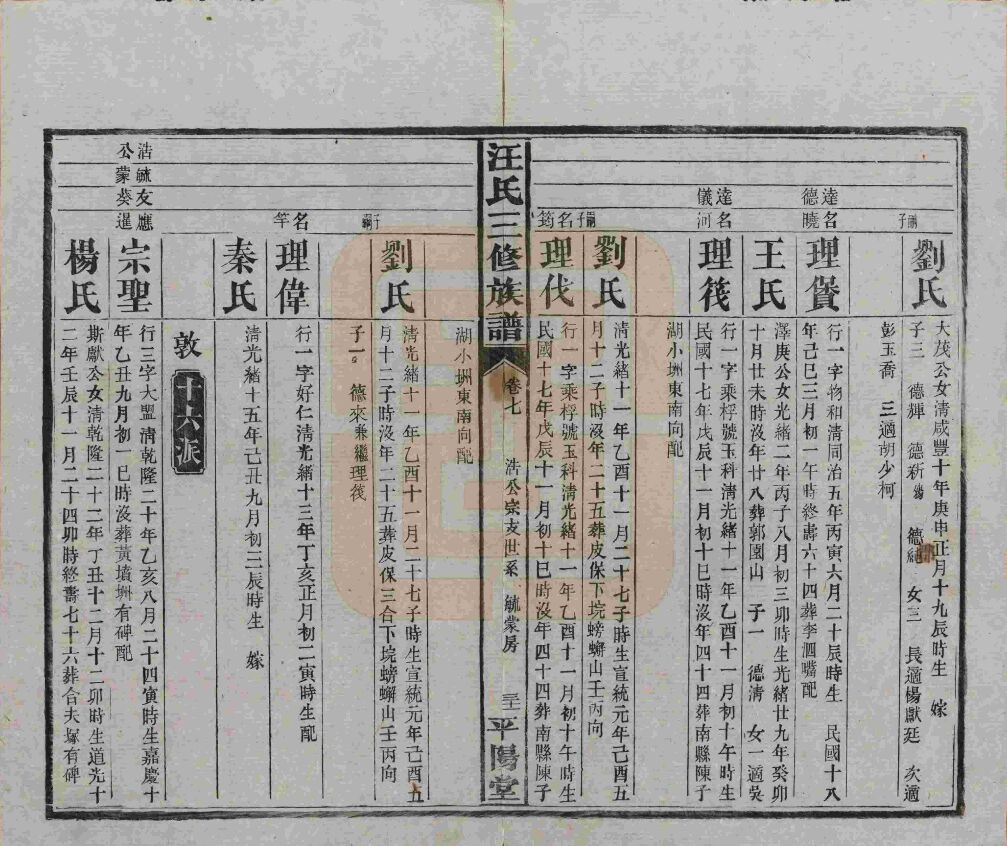 嗣子
劉氏
大茂公女清咸豐十年庚申正月十九辰時生 嫁
子三 德輝 德新殤 德純 女三 長適楊獻廷 次適
彭玉喬 三適胡少柯
達名
德曉
理
行一字物和清同治五年丙寅六月二十辰時生 民國十八
年己巳三月初一午時終壽六十四葬李泗嘴配
王氏
澤庚公女光緒二年丙子八月初三卯時生光緒廿九年癸卯
十月廿未時沒年廿八葬郭園山 子一 德清 女一適吳
達名
儀河
理筏
行一字乘桴號玉科清光緒十一年乙酉十一月初十午時生
民國十七年戊辰十一月初十巳時沒年四十四葬南縣陳子
湖小洲東南向配
嗣子
劉氏
清光緒十一年乙酉十一月二十七子時生宣統元年己酉五
月十二子時沒年二十五葬皮保下垸螃蠏山壬丙向
名筠
理伐
行一字乘桴號玉科清光緒十一年乙酉十一月初十午時生
民國十七年戊辰十一月初十巳時沒年四十四葬南縣陳子
汪氏三修族譜
卷七
浩公宗支世系 毓蒙房
三十
平陽堂
湖小洲東南向配
子嗣
劉氏
清光緒十一年乙酉十一月二十七子時生宣統元年己酉五
月十二子時沒年二十五葬皮保三合下垸螃蠏山壬丙向
子一 德來兼繼理筏
名竿
理偉
行一字好仁清光緒十三年丁亥正月初二寅時生配
秦氏
清光緒十五年己丑九月初三辰時生 嫁
敦 十六派
浩毓友應
公蒙葵暹
宗聖
行三字大盟清乾隆二十年乙亥八月二十四寅時生嘉慶十
年乙丑九月初一巳時沒葬黃墳堋有碑配
楊氏
斯獻公女清乾隆二十二年丁丑十二月十二卯時生道光十
二年壬辰十一月二十四卯時終壽七十六葬合夫塚有碑